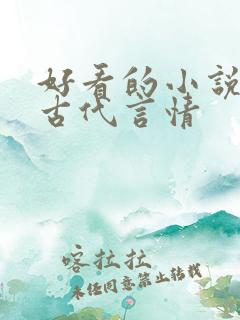 好看的小说
古代言情
喀拉拉
未经同意禁止转载